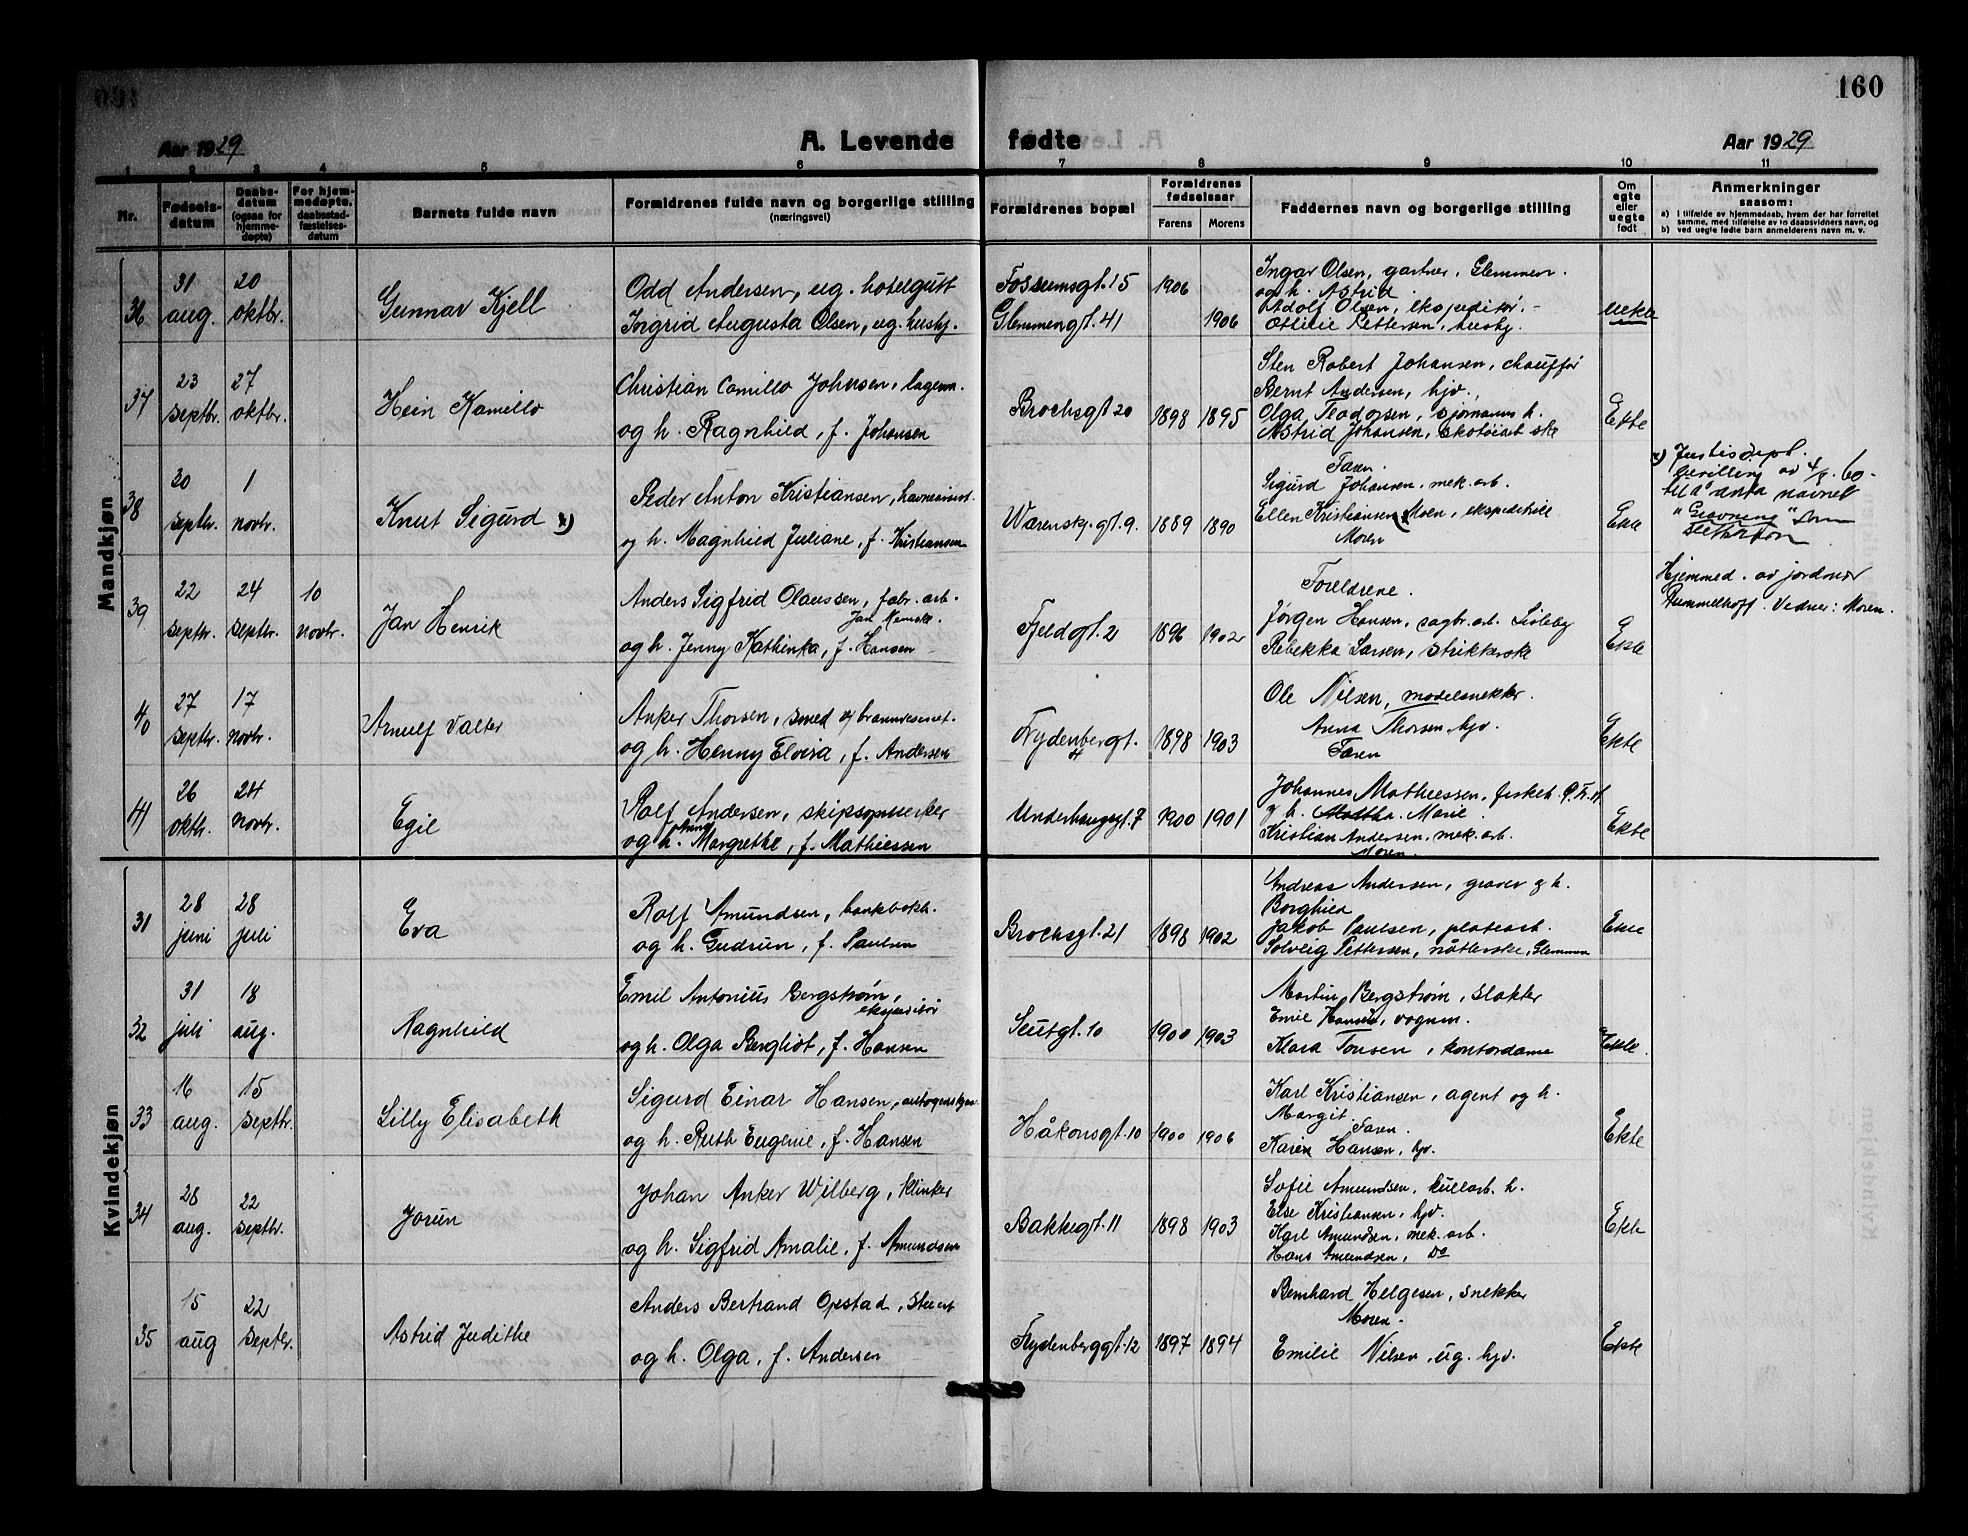 160
Aar 1929
A. Levende fødte
Aar 1929
1 2 3 4 5 6 7 8 9 10 11
Nr.
Fødsels-
datum
Daabs-
datum
(ogsaa for
hjemme-
døpte)
For hjem-
medøpte,
daabsstad-
fæstelses-
datum
Barnets fulde navn
Forældrenes fulde navn og borgerlige stilling
(næringsvei)
Forældrenes bopæl
Forældrenes
fødselsaar
Farens Morens
Faddernes navn og borgerlige stilling
Om
egte
eller
uegte
født
Anmerkninger
saasom:
a) i tilfælde av hjemmedaab, hvem der har forrettet
samme, med tilføielse av to daabsvidners navn, og
b) ved uegte fødte barn anmelderens navn m. v.
Mandkjøn
36
31
aug.
20
oktbr.
Gunnar Kjell
Odd Andersen, ug. hotelgutt
Ingrid Augusta Olsen, ug. hushj.
Fossumsgt. 15
Glemmengt. 41
1906
1906
Ingar Olsen, gartner, Glemmen.
og h. Astrid.
Adolf Olsen, ekspeditør.
Ottilie Pettersen, hushj.
uekte
37
23
septbr.
27
oktbr.
Hein Kamillo
Christian Camillo Johnsen, lagerm.
og h. Ragnhild, f. Johansen
Brochsgt. 20
1898 1895
Sten Robert Johansen, chauffør
Bernt Andersen, hjv.
Olga Teodorsen, sjømanns h.
Astrid Johansen,
Ekte
38
20
septbr.
1
novbr.
Knut Sigurd x)
Peder Anton Kristiansen,
og h. Magnhild Juliane, f. Kristiansen
Wærenskj. gt. 9.
1889 1890
Faren.
Sigurd Johansen, mek. arb.
Ellen Kristiansen Moen, ekspeditrise
Moren
Ekte
x) Justisdept.
bevilling av 4/8. 60
til å anta navnet
"Gravning" som
slektsnavn
39
22
septbr.
24
septbr.
10
novbr.
Jan Henrik
Anders Sigfrid Olaussen, fabr. arb.
og h. Jenny Kathinka, f. Hansen
Fjeldgt. 2
1896 1902
Foreldrene.
Jørgen Hansen, sagbr. arb. Lisleby
Rebekka Larsen, strikkerske
Ekte
Hjemmed. av jordmor
Rummelhoff. Vedner: Moren.
40
27
septbr.
17
novbr.
Arnulf Valter
Anker Thorsen, smed v/ brannvesenet.
og h. Henny Elvira, f. Andersen
Frydenbergt.
1898 1903
Ole Nilsen, modelsnekker
Anna Thorsen, hjv.
Faren
Ekte
41
26
oktbr.
24
novbr.
Egil
Rolf Andersen, skipsopmerker
og h. Anna Margrethe, f. Mathiessen
Underhaugsgt. 7
1900 1901
Johannes Mathiessen, fiskeh.
g h. Martha Marie
Kristian Andersen, mek. arb.
Moren.
Ekte
Kvindekjøn
31
28
juni
28
juli
Eva
Rolf Amundsen, bankbokh.
og h. Gudrun, f. Paulsen
Brochsgt. 21
1898 1902
Andreas Andersen, graver g h.
Borghild
Jakob Paulsen, platearb.
Solveig Pettersen, nåtlerske, Glemmen
Ekte
32
31
juli
18
aug.
Ragnhild
Emil Antonius Bergstrøm,
ekspeditør
og h. Olga Bergliot, f. Hansen
Seutgt. 10
1900 1903
Martin Bergstrøm, slakter
Emil Hansen, vognm.
Klara Tonsen, kontordame
Ekte
33
16
aug.
15
septbr.
Lilly Elisabeth
Sigurd Einar Hansen,
og h. Ruth Eugenie, f. Hansen
Håkonsgt. 10
1900 1906
Karl Kristiansen, agent og h.
Margit.
Faren.
Karen Hansen, hjv.
Ekte
34
28
aug.
22
septbr.
Jorun
Johan Anker Wilberg, klinker
og h. Sigfrid Amalie, f. Amundsen
Bakkegt. 11
1898 1903
Sofie Amundsen, kullarb. h.
Else Kristiansen, hjv.
Karl Amundsen, mek. arb.
Hans Amundsen, Do
Ekte
35
15
aug
22
septbr.
Astrid Judithe
Anders Bertrand Opstad, stuert
og h. Olga, f. Andersen
Frydenberggt. 12
1897 1894
Bernhard Helgesen, snekker
Moren.
Emilie Nilsen, ug. hjv.
Ekte